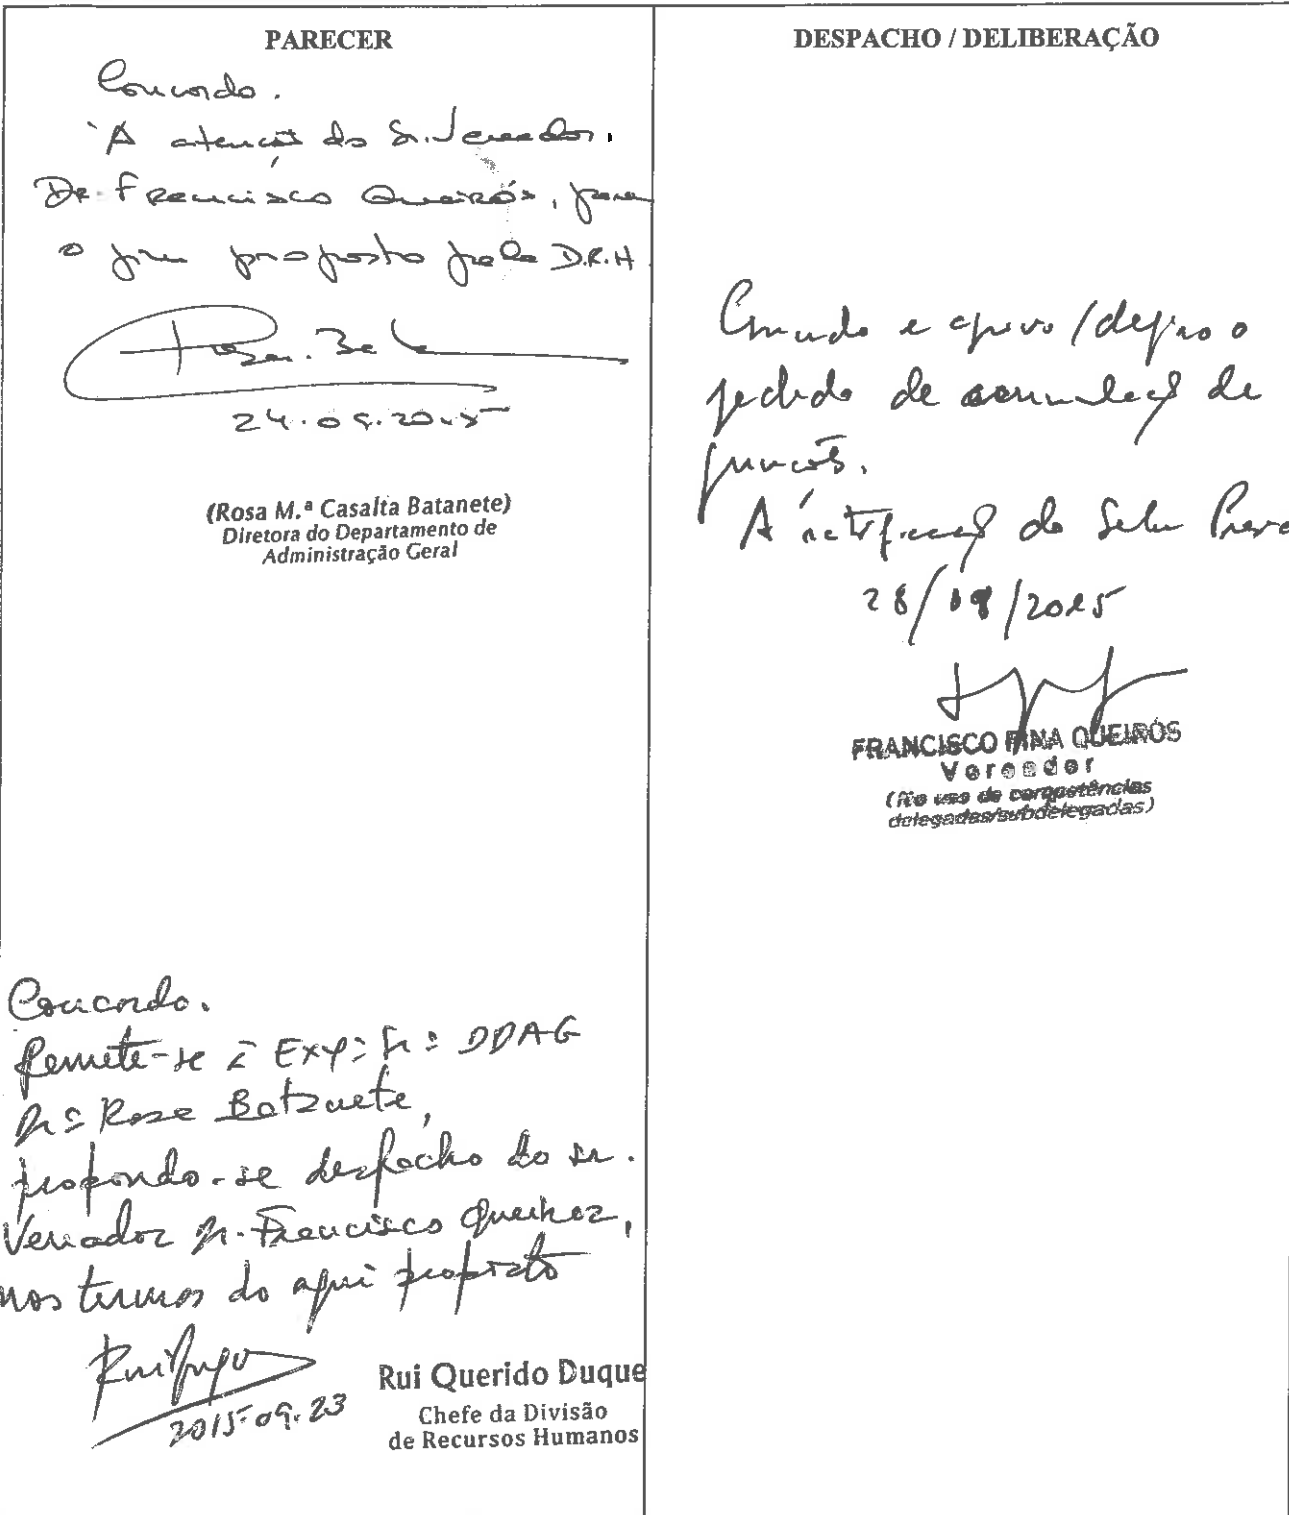 PARECER
Concordo.
À atenção do Sr. Vereador.
Dr. Francisco Queirós, para
o fim proposto pela D.R.H
24.09.2015
(Rosa M.ª Casalta Batanete)
Diretora do Departamento de
Administração Geral
Concordo.
Remete-se à Exmª Srª DDAG
Drª Rosa Batanete,
propondo-se despacho do sr.
Vereador Dr. Francisco Queiroz,
nos termos do aqui proposto
2015.09.23
Rui Querido Duque
Chefe da Divisão
de Recursos Humanos
DESPACHO / DELIBERAÇÃO
Concordo e aprovo / defiro o
pedido de acumulação de
funções.
À notificação do
28/09/2015
FRANCISCO PINA QUEIRÓS
Vereador
(No uso de competências
delegadas/subdelegadas)